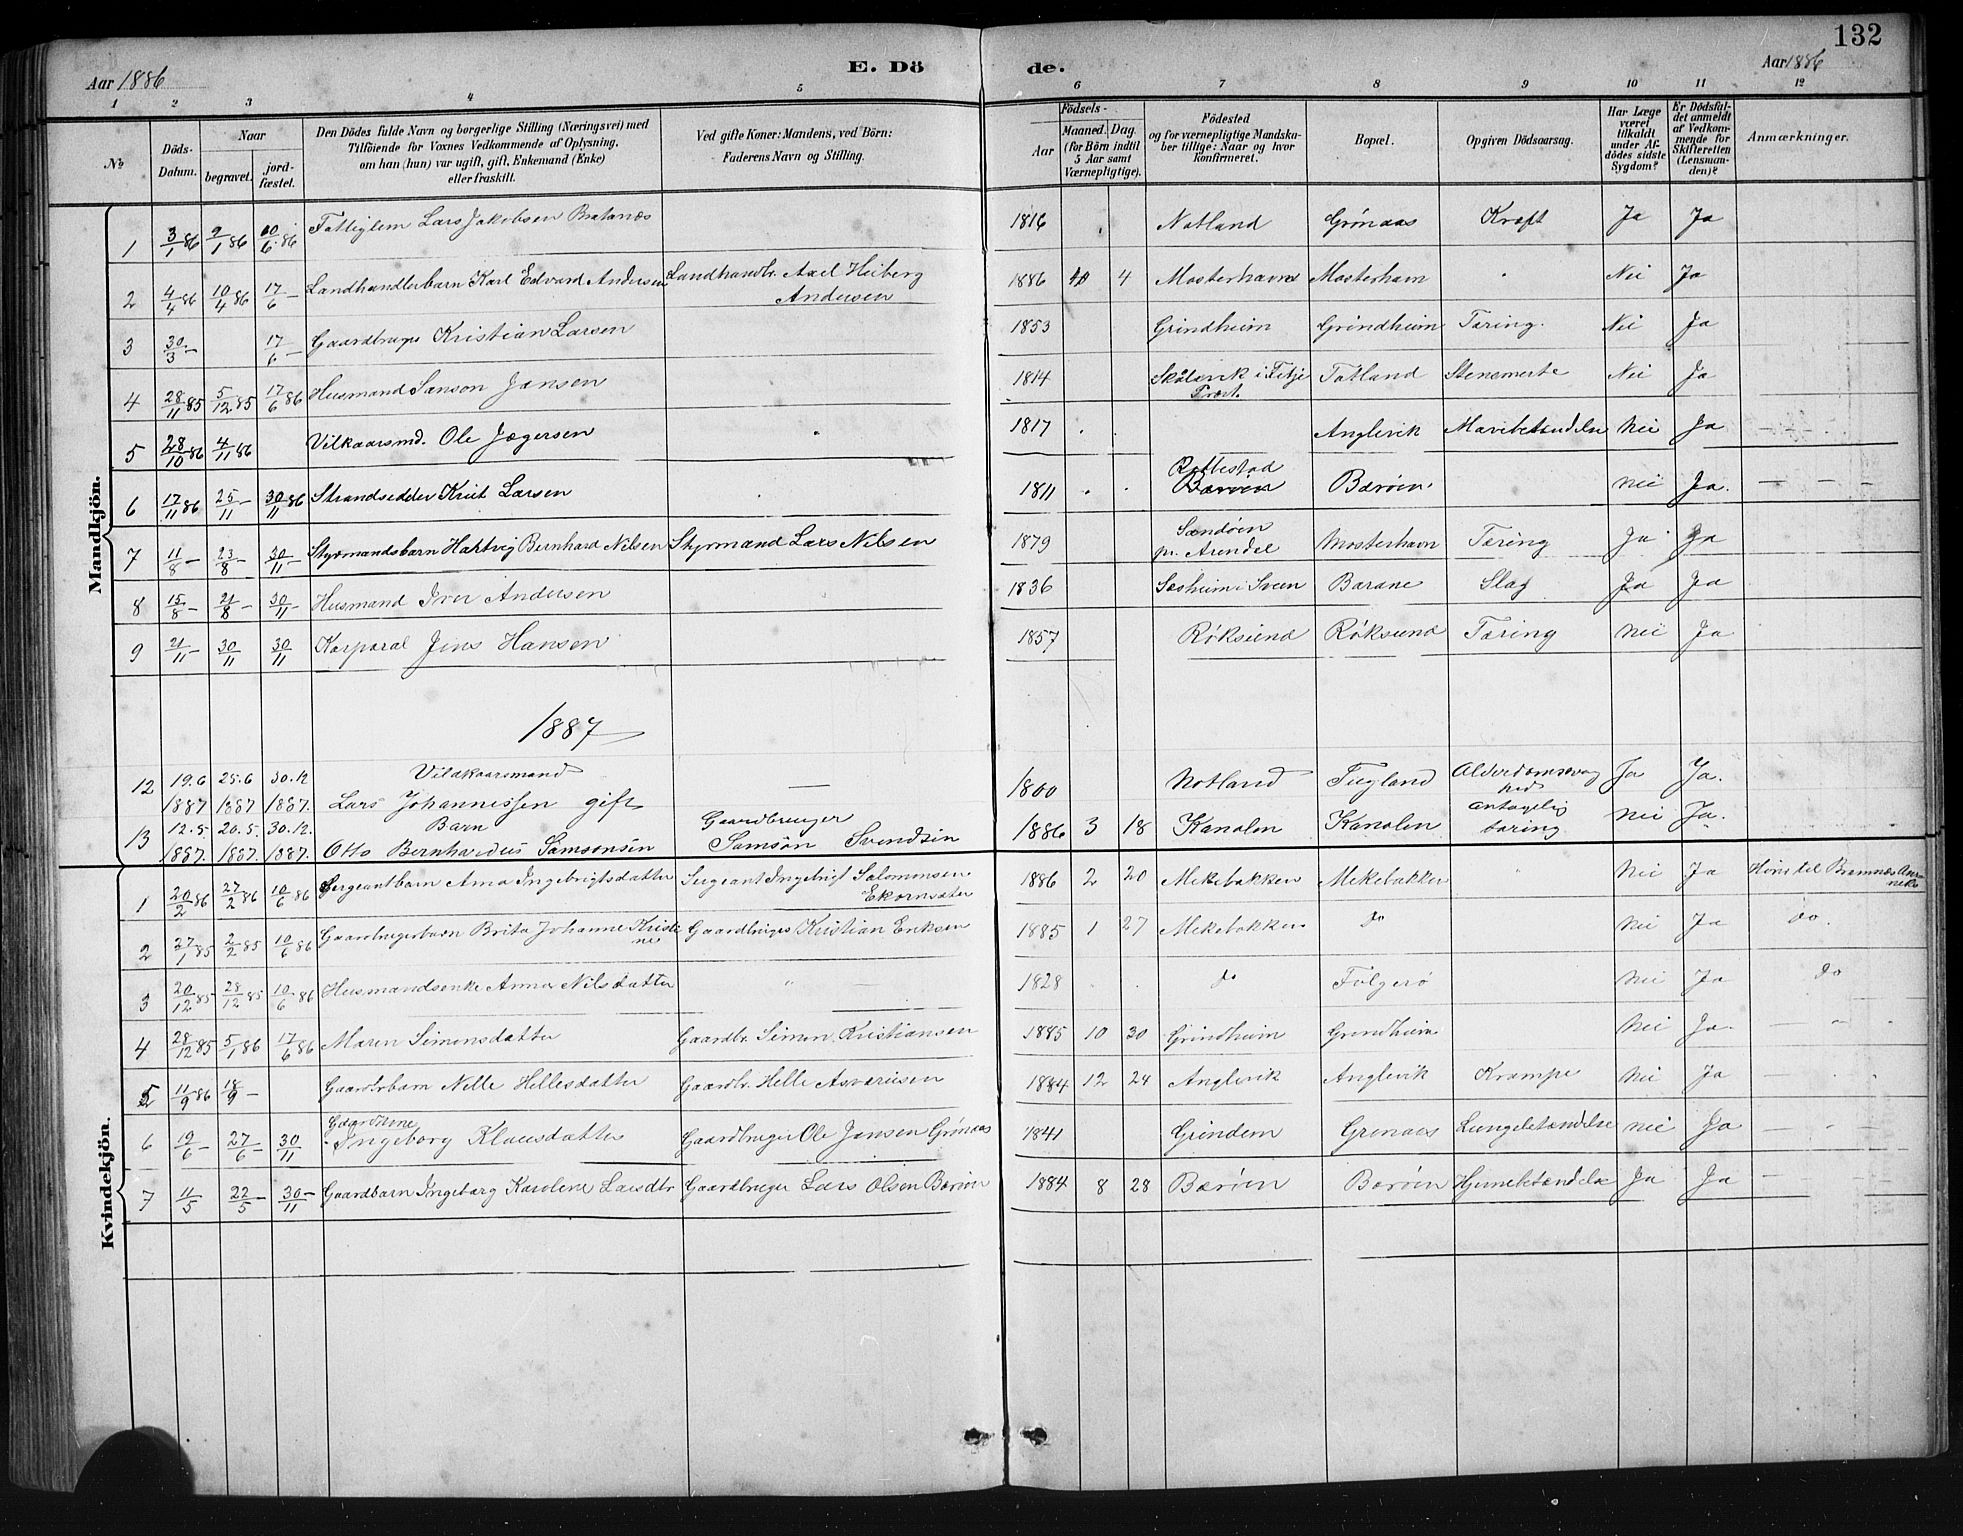 132
Aar 1886
E. Dö
de.
Aar 1886
1 2 3 4 5 6 7 8 9 10 11 12
No
Döds-Datum.
Naar
begravet.
jord-fæstet.
Den Dödes fulde Navn og borgerlige Stilling (Næringsvei) med
Tilföiende for Voxnes Vedkommende af Oplysning,
om han (hun) var ugift, gift, Enkemand (Enke)
eller fraskilt.
Ved gifte Koner: Mandens, ved Börn:
Faderens Navn og Stilling.
Födsels-
Aar
Maaned. Dag.
(for Börn indtil
5 Aar samt
Værnepligtige).
Födested
og for værnepligtige Mandska-
ber tillige: Naar og hvor
Konfirmeret.
Bopæl.
Opgiven Dödsaarsag.
Har Læge
været
tilkaldt
under Af-
dödes sidste
Sygdom?
Er Dödsfal-
det anmeldt
af Vedkom-
mende for
Skifteretten
(Lensman-
den)?
Anmærkninger.
Mandkjön.
1 3/1 86 9/1 86 10/6 86 Fattiglem Lars Jakobsen Bratanæs 1816 Notland Grönaas Kræft Ja Ja
2 4/4 86 10/4 86 17/6 — Landhandlerbarn Karl Edvard Andersen Landhandlr. Axel Heiberg Andersen 1886 4 Mosterhavn Mosterhavn Nei Ja
3 30/3 — 17/6 — Gaardbruger Kristian Larsen 1853 Grindheim Grindheim Tæring. Nei Ja
4 28/11 85 5/12 85 17/6 86 Husmand Samson Jansen 1814 i Fitje Præst. Totland Stensmerte Nei Ja
5 28/10 86 4/11 86 Vilkaarsmd. Ole Jægersen 1817 Anglevik Mavebetændelse Nei Ja
6 17/11 86 25/11 — 30/11 86 Strandsedder Knut Larsen 1811 Rottestad Bærøen Bærøen Nei Ja.
7 11/8 — 23/8 — 30/11 — Styrmandsbarn Hartvig Bernhard Nilsen Styrmand Lars Nilsen 1879 Sandøen pr. Arendal Mosterhavn Tæring Ja Ja
8 15/8 — 21/8 — 30/11 — Husmand Iver Andersen 1836 Sæsheim i Sveen Barane Slag Ja Ja
9 21/11 — 30/11 30/11 Korporal Jens Hansen 1857 Røksund Røksund Tæring Nei Ja
1887
12 19.6 1887 25.6 1887 30.12 1887. Vilkaarsmand Lars Johannessen gift — 1800 Notland Fugland Alderdomssvaghed Ja Ja.
13 12.5 1887. 20.5. 1887. 30.12. 1887. Barn Otto Bernhardus Samsonsen Gaardbruger Samson Svendsen 1886 3 18 Kanalen Kanalen antagelig tæring Nei Ja.
Kvindekjön.
1 20/2 86 27/2 86 10/6 86 Sergeantbarn Anna Ingebrigtsdatter Sergeant Ingebrigt Salomonsen Ekornsæter 1886 2 20 Mekebakken Mekebakken Nei Ja til Bremnæs
2 27/1 85 2/2 85 10/6 86 Gaardbrugerbarn Brita Johanne Kristine Gaardbruger Kristian Eriksen 1885 1 27 Mekebakken Do Nei Ja do.
3 20/12 85 28/12 85 10/6 86 Husmandsenke Anna Nilsdatter " 1828 do Folgerø Nei Ja Do
4 28/12 85 5/1 86 17/6 86 Maren Simonsdatter Gaardbr. Simon Kristiansen 1885 10 30 Grindheim Grindheim Nei Ja
5 11/9 86 18/9 — Gaardbrbarn Nille Hellesdatter Gaardbr. Helle Asvariusen 1884 12 24 Anglevik Anglevik Krampe Nei Ja
6 19/6 — 27/6 — 30/11 Gaardkone Ingeborg Klausdatter Gaardbruger Ole Jansen Grönaas 1841 Grindem Grönaas Lungebetændelse Nei Ja
7 11/5 22/5 — 30/11 — Gaardbarn Ingeborg Karoline Larsdtr Gaardbruger Lars Olsen Bærøen 1884 8 28 Bærøen Bærøen Hjernebetændelse Ja Ja